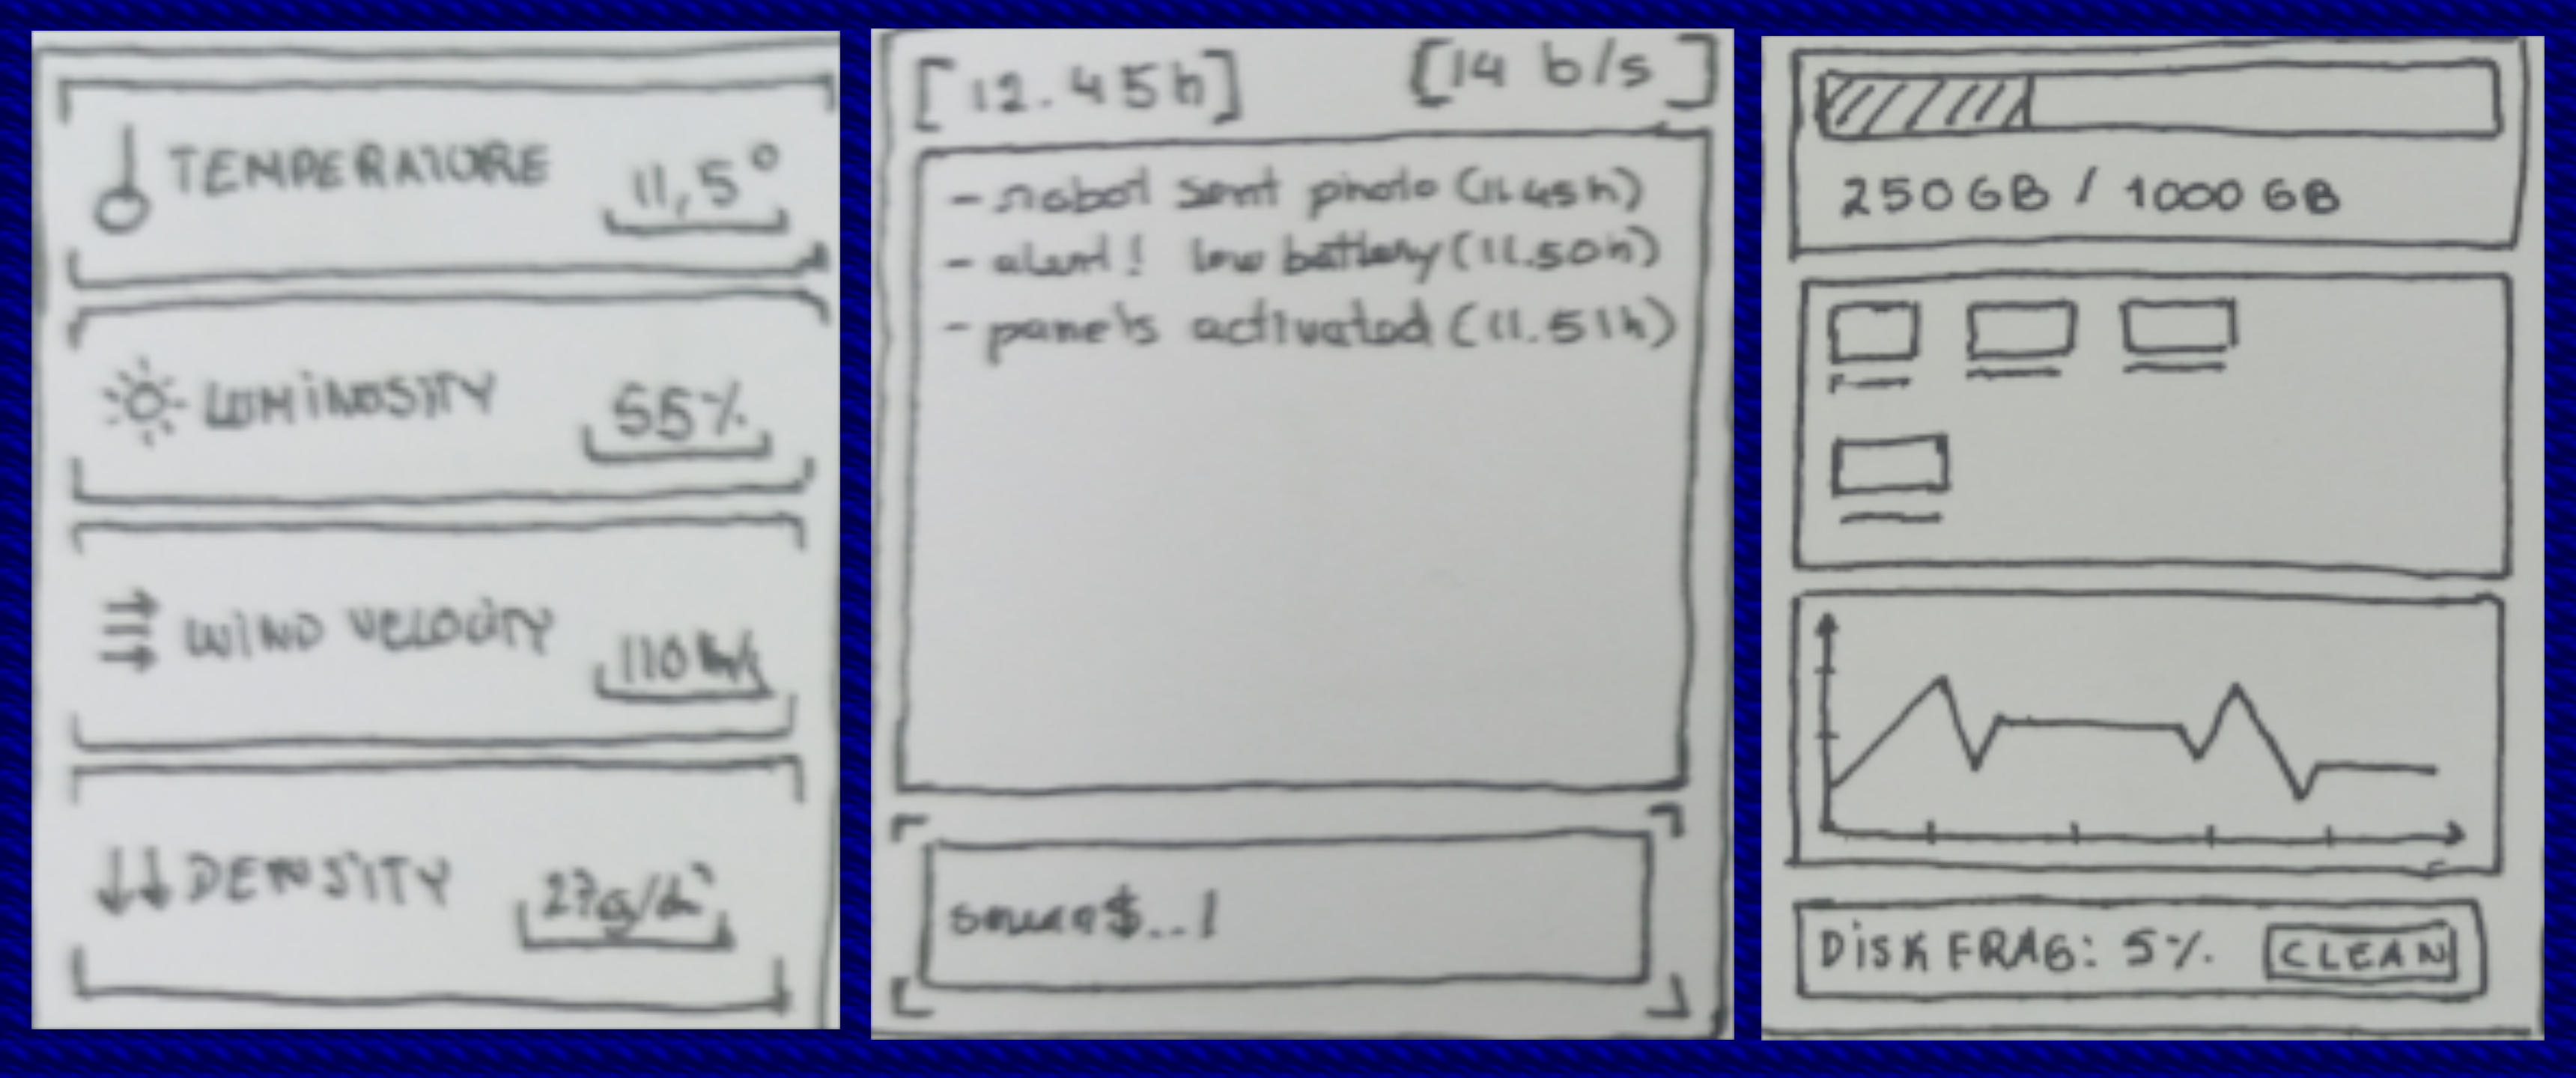 TEMPERATURE
11,5°
LUMINOSITY
55%
WIND VELOCITY
110
DENSITY
27g/
[12.45h]
[14 b/s]
- robot sent photo (11.45h)
- alert! low battery (11.50h)
- panels activated (11.51h)
250 GB / 1000 GB
DISK FRAG: 5%
CLEAN